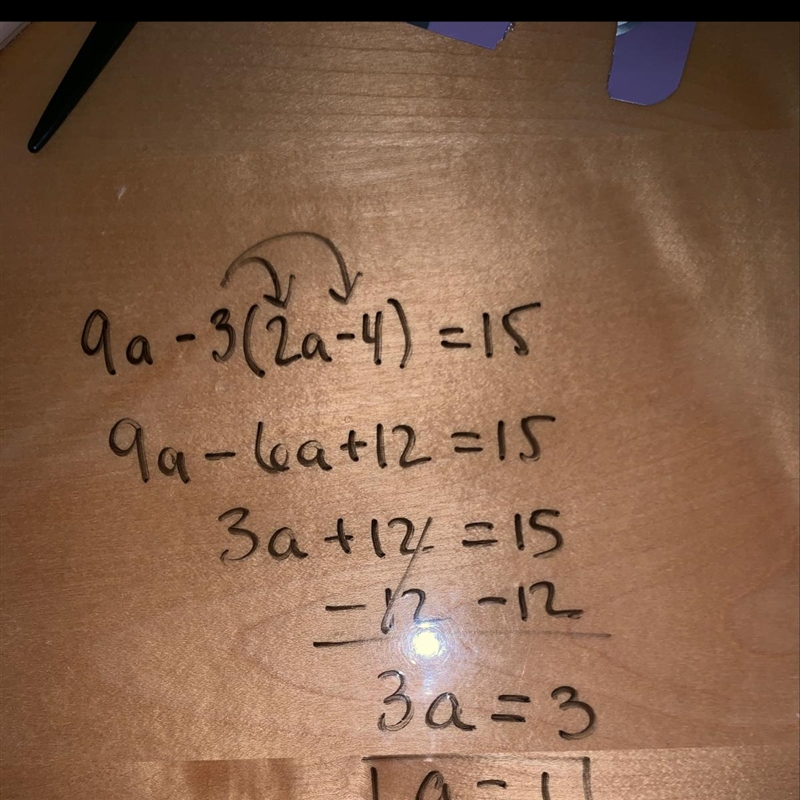 9a - 3(2a - 4) = 15
9a - 6a + 12 = 15
3a + 12 = 15
- 12 - 12
3a = 3
a = 1